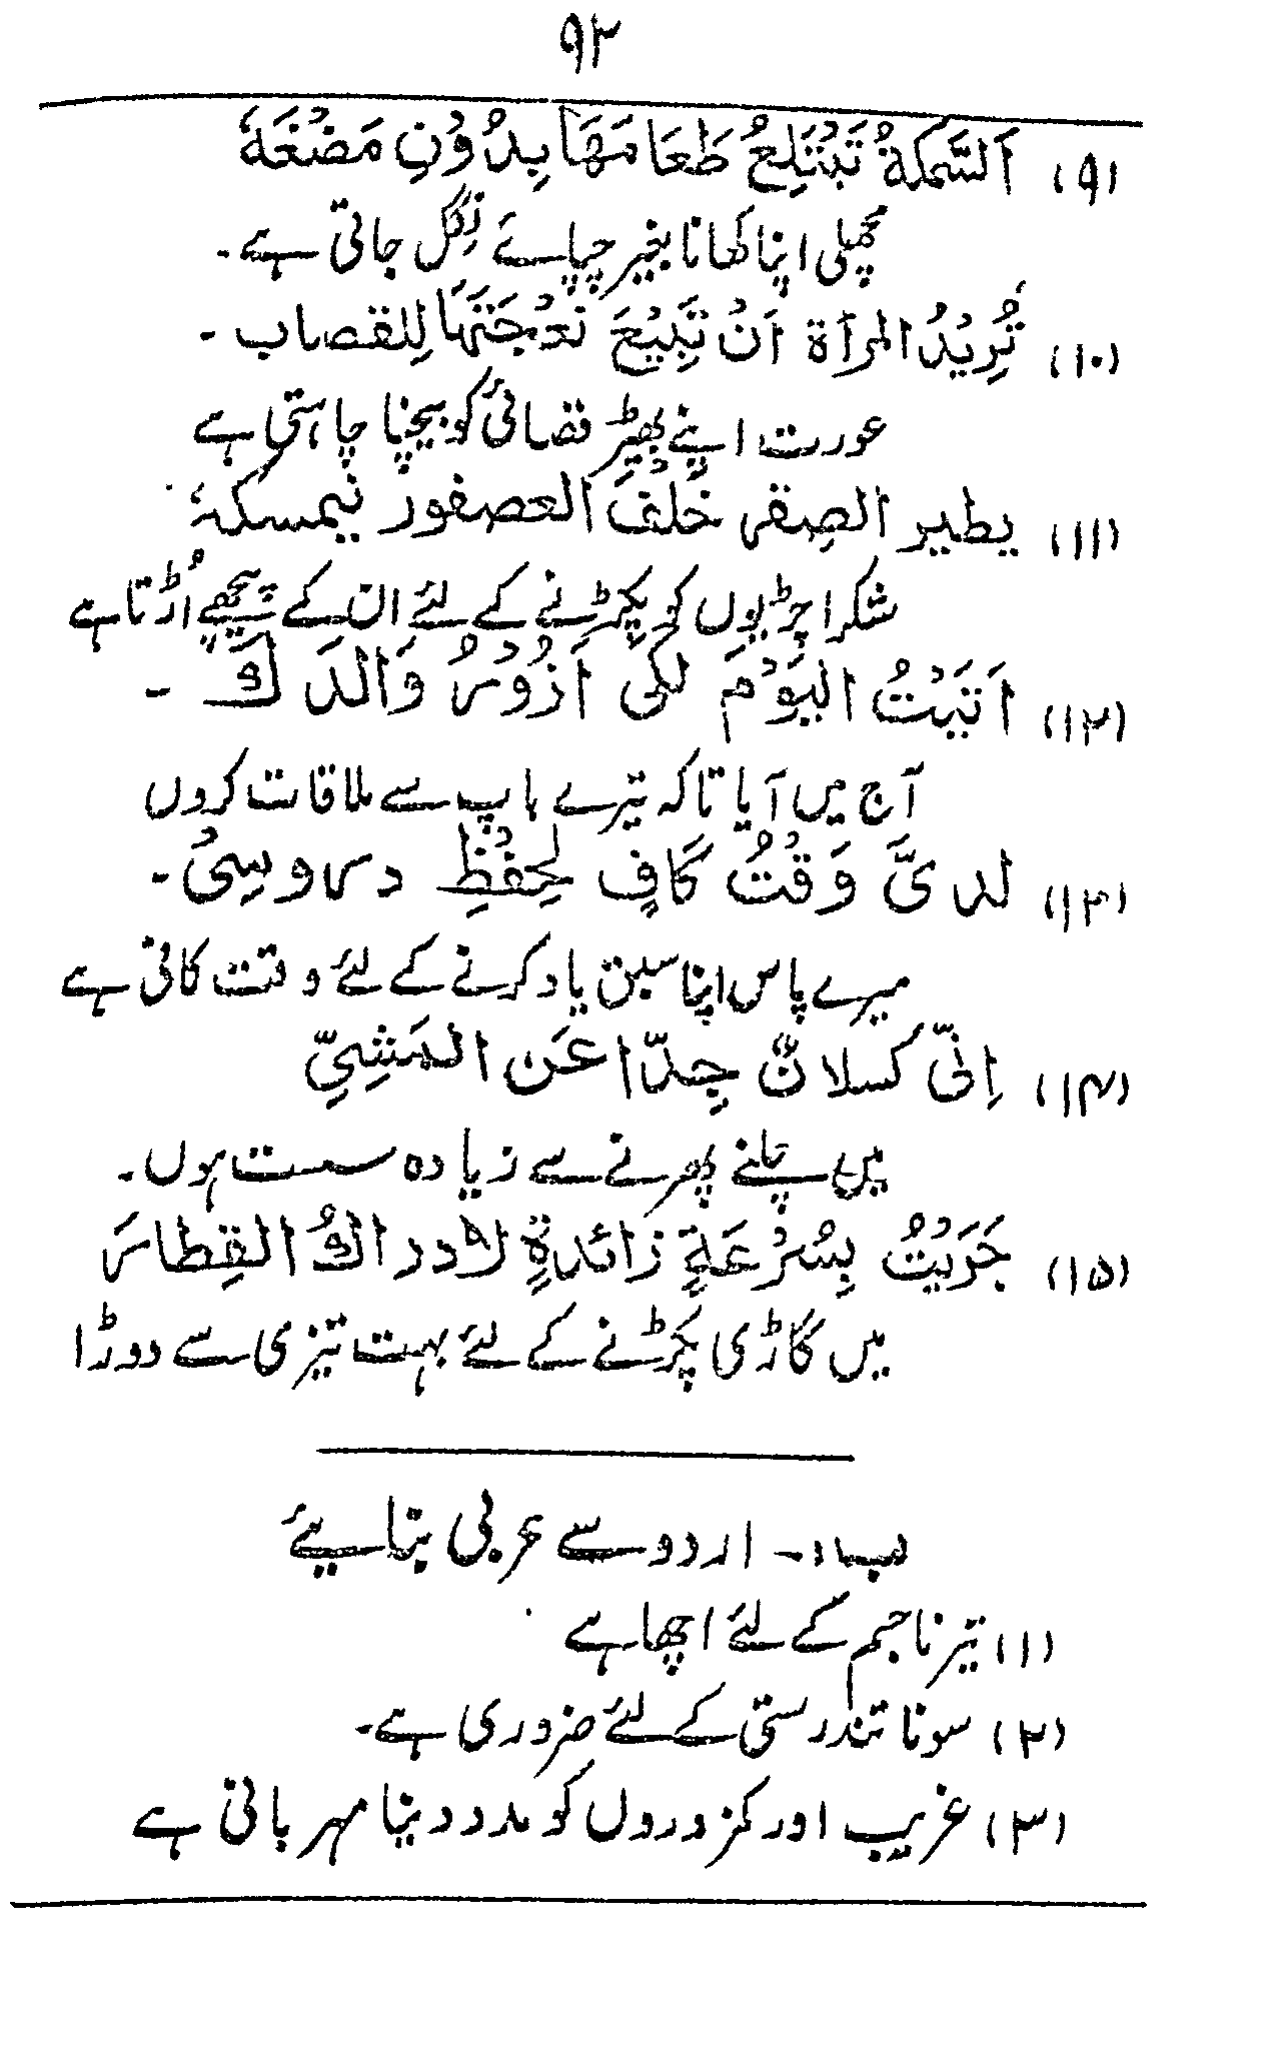 ۹۲
(۹) اَلسَّمَكَةُ تَبْتَلِعُ طَعَامَهَا بِدُوْنِ مَضْغَهٗ
مچھلی اپنا کھانا بغیر چپائے نِگل جاتی ہے۔
(۱۰) تُرِیْدُ المرأة اَنْ تَبِیْعَ نَعْجَتَهَا لِلقصاب ۔
عورت اپنے بھیڑ قصائی کو بیچنا چاہتی ہے
(۱۱) یطیر الصِقر خَلْفَ العصفور لیمسکهٗ
شکرا چڑیوں کو پکڑنے کے لئے ان کے پیچھے اُڑتا ہے
(۱۲) اَتَیْتُ الیَوْمَ لکی اَزُوْرُ وَالدَكَ ۔
آج میں آیا تاکہ تیرے باپ سے ملاقات کروں
(۱۳) لدیَّ وَقْتُ کَافٍ لِحِفْظِ دروسِیُ ۔
میرے پاس اپنا سبق یاد کرنے کے لئے وقت کافی ہے
(۱۴) اِنّی کسلانٌ جِدّا عَن المَشِیِّ
میں چلنے پھرنے سے زیادہ سست ہوں۔
(۱۵) جَرَیْتُ بِسُرْعَةٍ زائدةٍ لادراكُ القِطارَ
میں گاڑی پکڑنے کے لئے بہت تیزی سے دوڑا
ب ۱۔ اردو سے عربی بنایئے
(۱) تیرنا جسم کے لئے اچھا ہے
(۲) سونا تندرستی کے لئے ضروری ہے۔
(۳) غریب اور کمزوروں کو مدد دینا مہربانی ہے